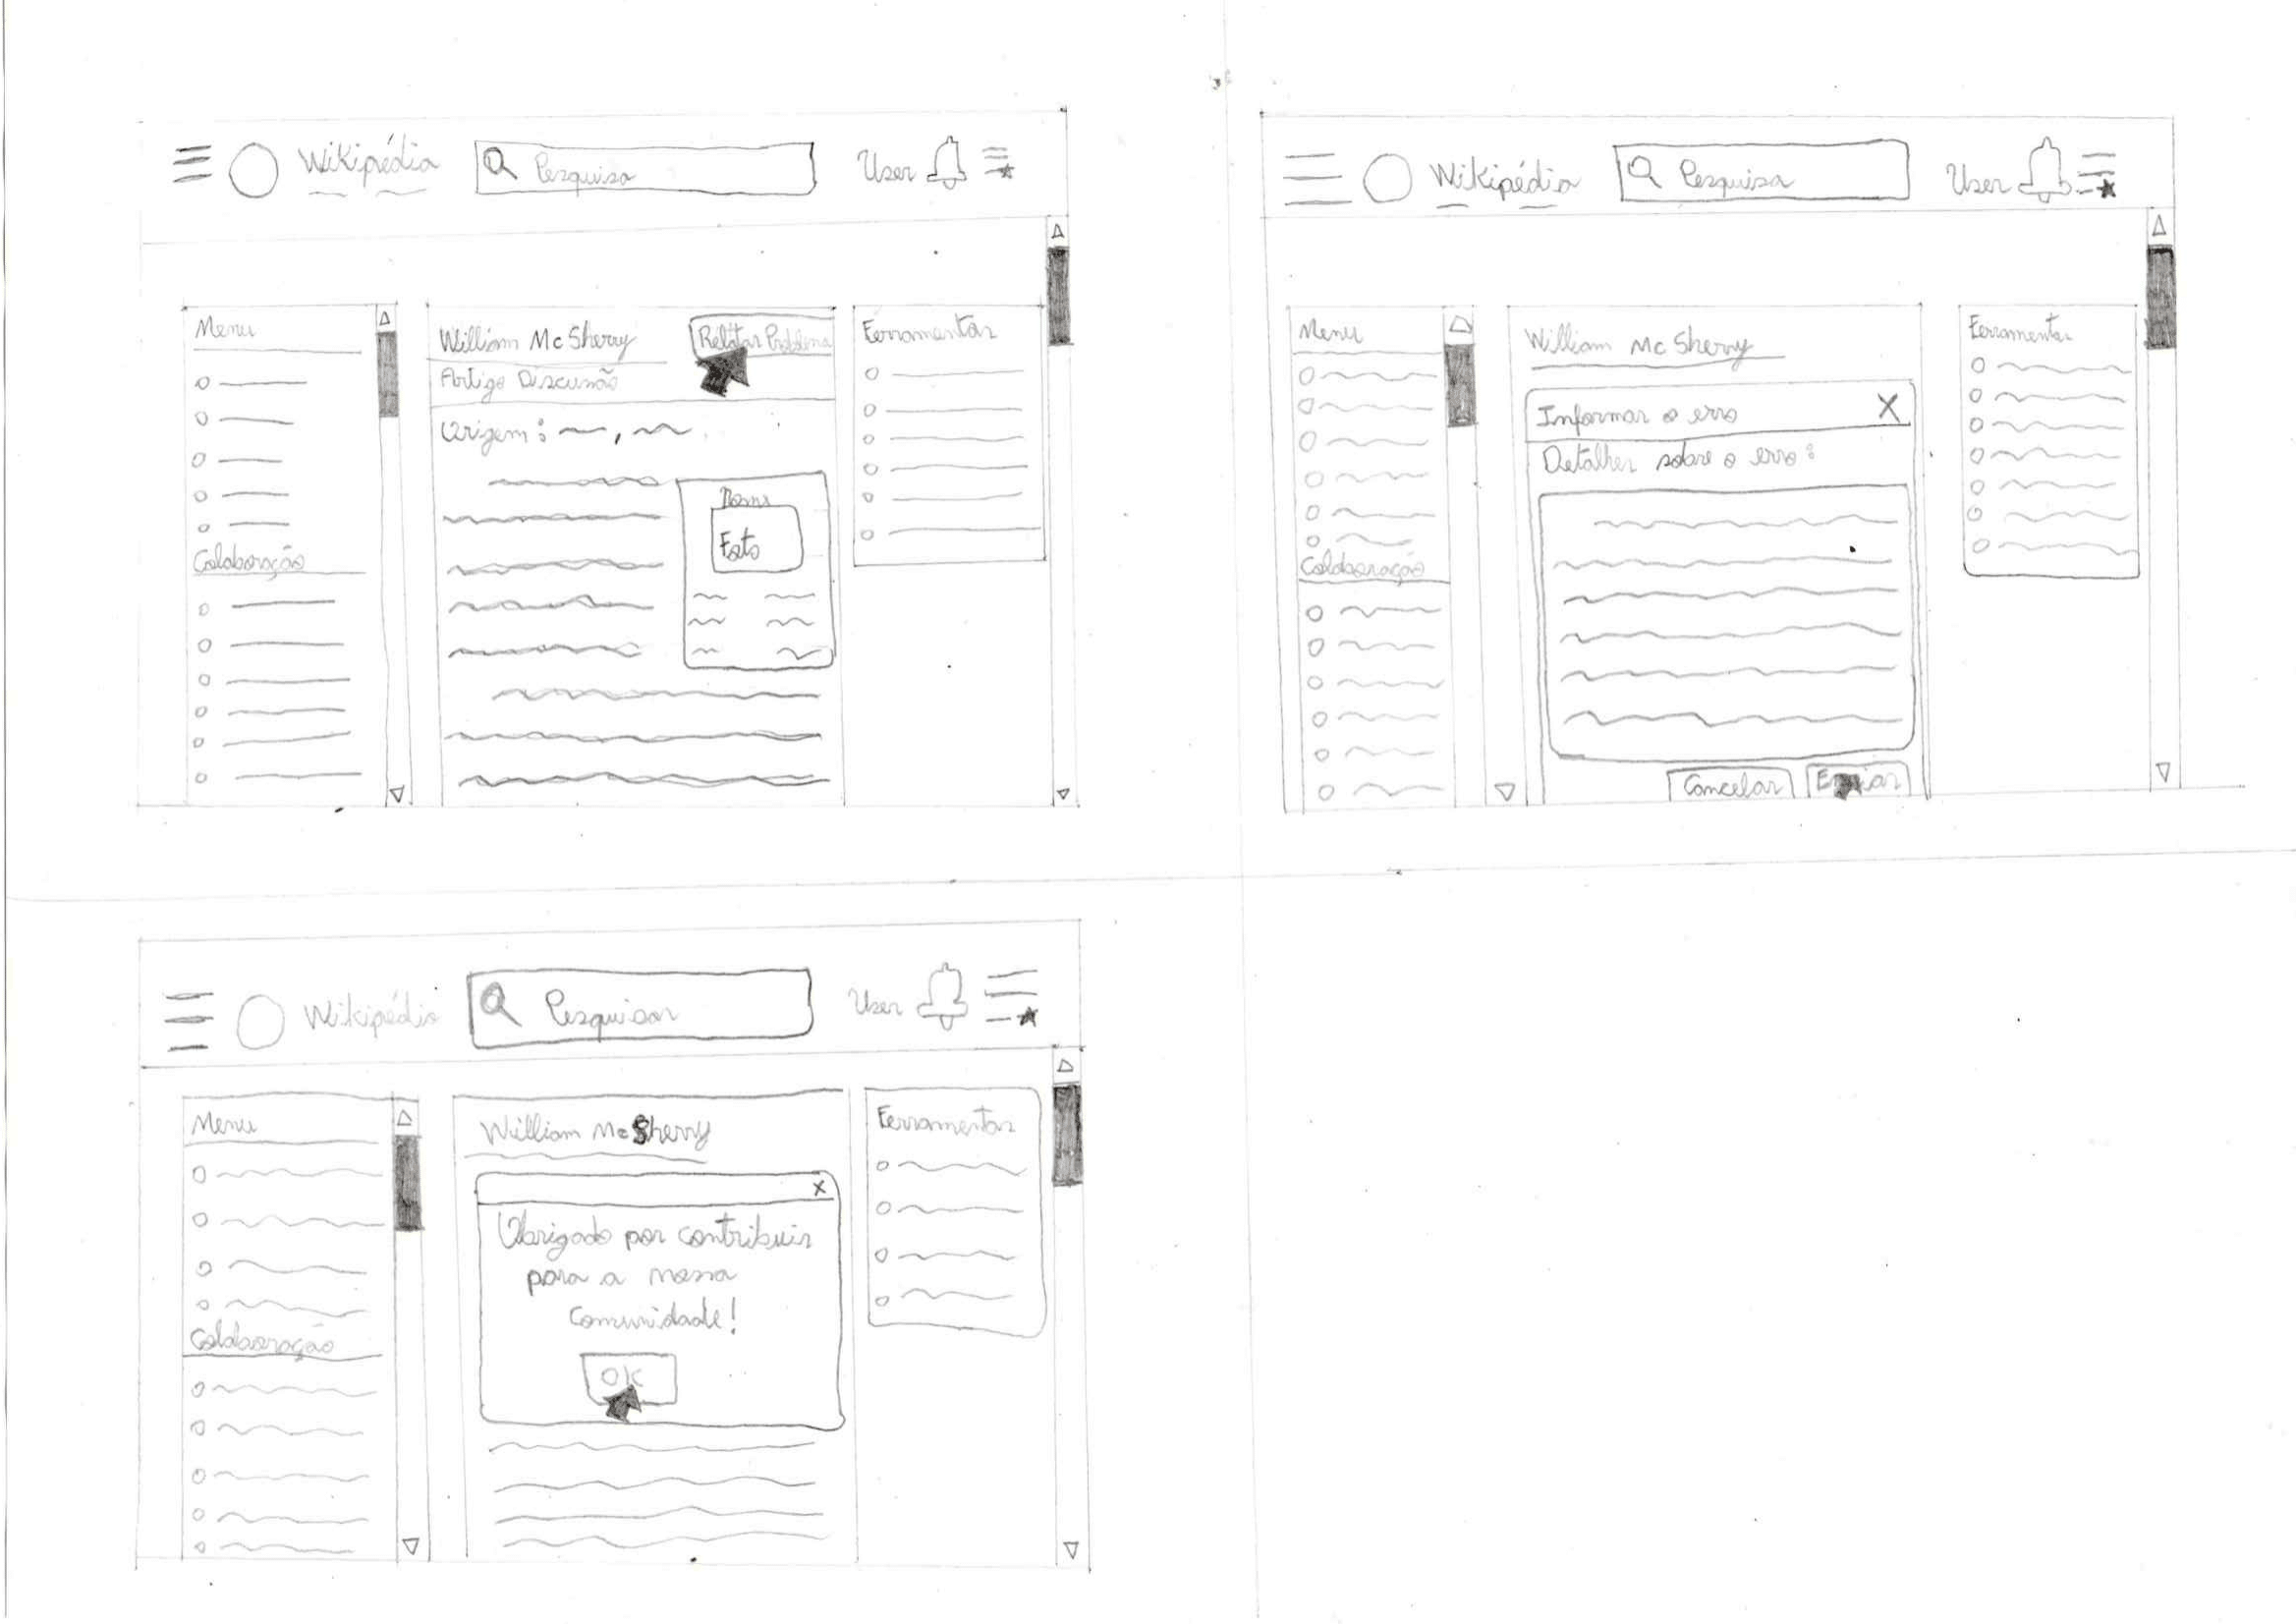 Wikipédia
Pesquisa
User
Menu
Colaboração
William McSherry
Relatar Problema
Artigo Discussão
Origem:
Nome
Foto
Ferramentas
Wikipédia
Pesquisa
User
Menu
Colaboração
William McSherry
Informar o erro X
Detalhes sobre o erro:
Cancelar Enviar
Ferramentas
Wikipédia
Pesquisar
User
Menu
Colaboração
William McSherry
X
Obrigado por contribuir
para a nossa
comunidade!
OK
Ferramentas